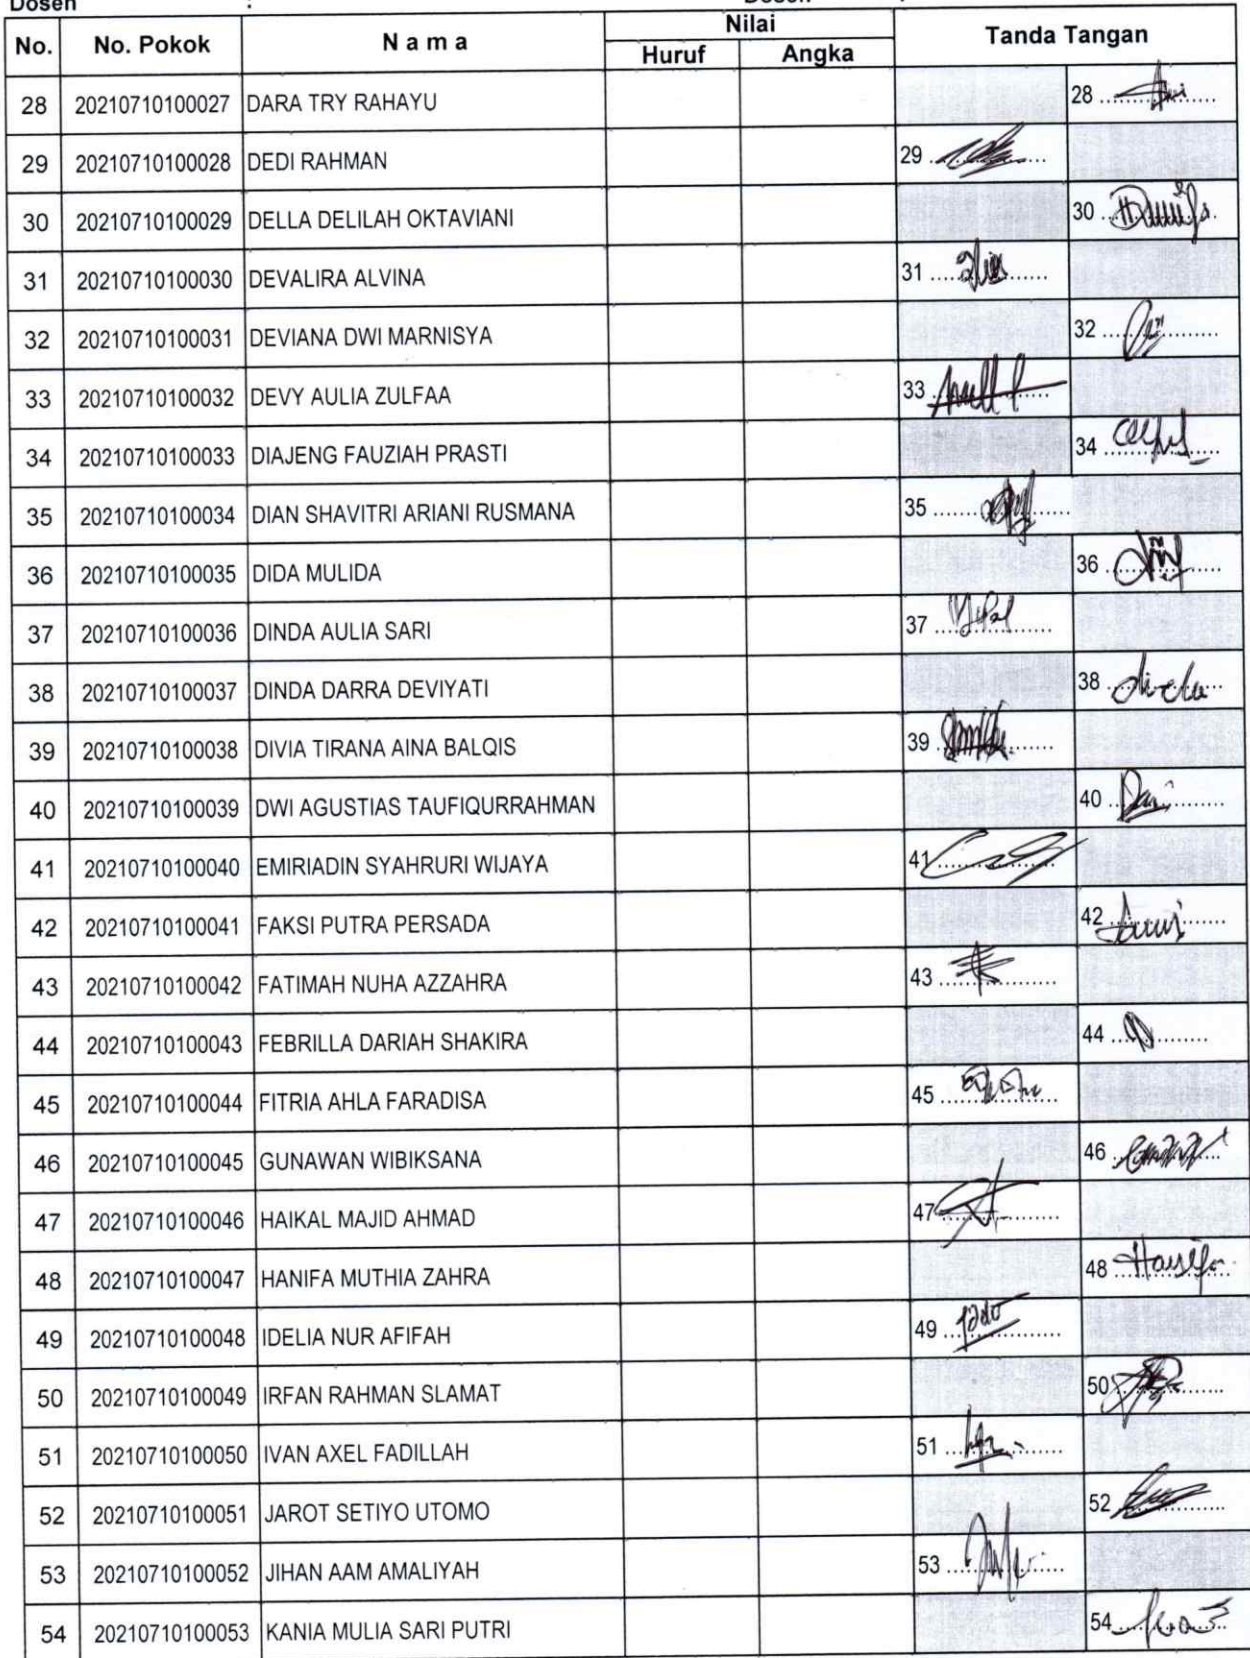 Dosen : Dosen :
No. No. Pokok N a m a Nilai Tanda Tangan
Huruf Angka
28 20210710100027 DARA TRY RAHAYU 28 ....................
29 20210710100028 DEDI RAHMAN 29 ....................
30 20210710100029 DELLA DELILAH OKTAVIANI 30 ....................
31 20210710100030 DEVALIRA ALVINA 31 ....................
32 20210710100031 DEVIANA DWI MARNISYA 32 ....................
33 20210710100032 DEVY AULIA ZULFAA 33 ....................
34 20210710100033 DIAJENG FAUZIAH PRASTI 34 ....................
35 20210710100034 DIAN SHAVITRI ARIANI RUSMANA 35 ....................
36 20210710100035 DIDA MULIDA 36 ....................
37 20210710100036 DINDA AULIA SARI 37 ....................
38 20210710100037 DINDA DARRA DEVIYATI 38 ....................
39 20210710100038 DIVIA TIRANA AINA BALQIS 39 ....................
40 20210710100039 DWI AGUSTIAS TAUFIQURRAHMAN 40 ....................
41 20210710100040 EMIRIADIN SYAHRURI WIJAYA 41 ....................
42 20210710100041 FAKSI PUTRA PERSADA 42 ....................
43 20210710100042 FATIMAH NUHA AZZAHRA 43 ....................
44 20210710100043 FEBRILLA DARIAH SHAKIRA 44 ....................
45 20210710100044 FITRIA AHLA FARADISA 45 ....................
46 20210710100045 GUNAWAN WIBIKSANA 46 ....................
47 20210710100046 HAIKAL MAJID AHMAD 47 ....................
48 20210710100047 HANIFA MUTHIA ZAHRA 48 Hanifa
49 20210710100048 IDELIA NUR AFIFAH 49 ....................
50 20210710100049 IRFAN RAHMAN SLAMAT 50 ....................
51 20210710100050 IVAN AXEL FADILLAH 51 ....................
52 20210710100051 JAROT SETIYO UTOMO 52 ....................
53 20210710100052 JIHAN AAM AMALIYAH 53 ....................
54 20210710100053 KANIA MULIA SARI PUTRI 54 ....................